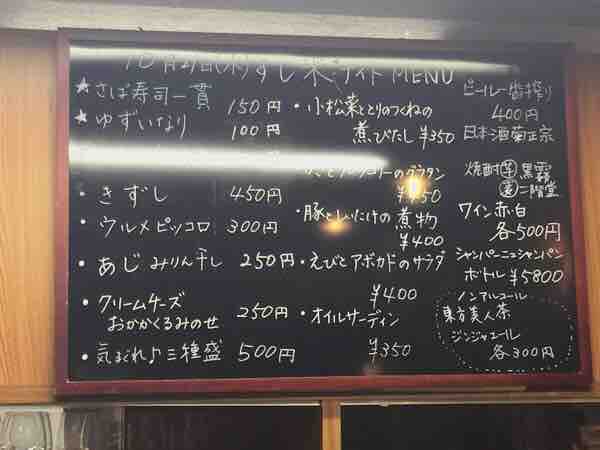 10月21日(水)すし 米 ナイト MENU
★さば寿司一貫 150円
★ゆずいなり 100円
・きずし 450円
・ウルメピッコロ 300円
・あじみりん干し 250円
・クリームチーズ
おかかくるみのせ 250円
・気まぐれ♪三種盛 500円
・小松菜ととりのつくねの
煮びたし ¥350
グラタン
・豚としいたけの煮物
¥400
・えびとアボカドのサラダ
¥400
・オイルサーディン
¥350
ビール 一番搾り
400円
日本酒 菊正宗
焼酎 芋 黒霧
麦 二階堂
ワイン 赤・白
各500円
シャンパーニュシャンパン
ボトル ¥5800
ノンアルコール
東方美人茶
ジンジャエール
各300円